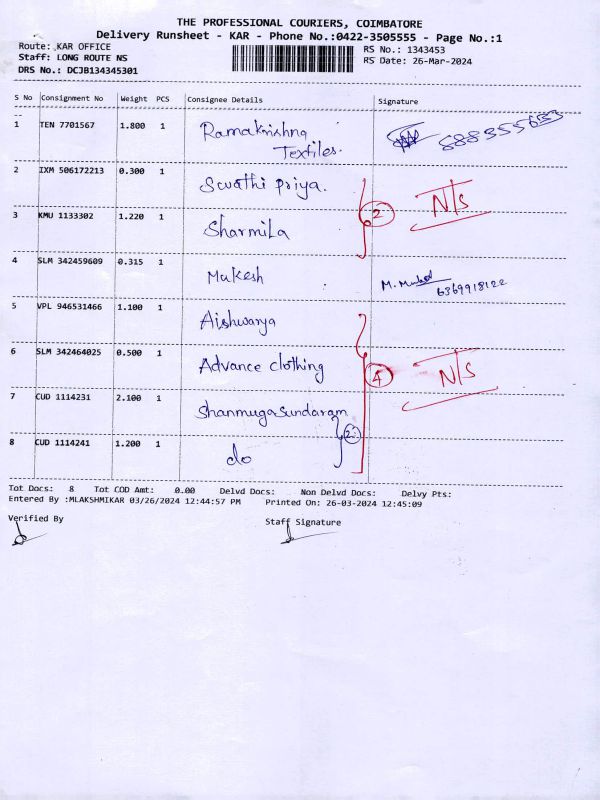 THE PROFESSIONAL COURIERS, COIMBATORE
Delivery Runsheet - KAR - Phone No.:0422-3505555 - Page No.:1
Route: KAR OFFICE RS No.: 1343453
Staff: LONG ROUTE NS RS Date: 26-Mar-2024
DRS No.: DCJB134345301
S No Consignment No Weight PCS Consignee Details Signature
1 TEN 7701567 1.800 1 Ramakrishna Textiles.
2 IXM 506172213 0.300 1 Swathi priya.
2 N/s
3 KMU 1133302 1.220 1 Sharmila
4 SLM 342459609 0.315 1 Mukesh M. 6369918122
5 VPL 946531466 1.100 1 Aishwarya
6 SLM 342464025 0.500 1 Advance clothing
4 N/s
7 CUD 1114231 2.100 1 Shanmugasundaram
2
8 CUD 1114241 1.200 1 do
Tot Docs: 8 Tot COD Amt: 0.00 Delvd Docs: Non Delvd Docs: Delvy Pts:
Entered By :MLAKSHMIKAR 03/26/2024 12:44:57 PM Printed On: 26-03-2024 12:45:09
Verified By Staff Signature